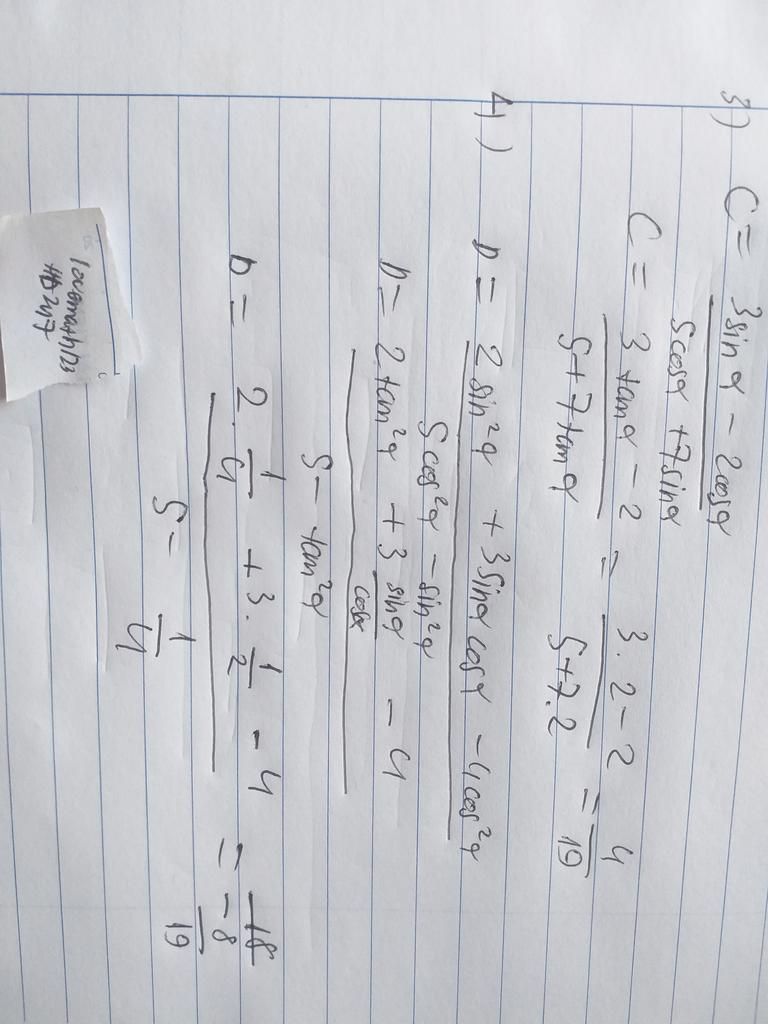 3) C = (3sinα - 2cosα)/(5cosα + 7sinα)
C = (3tanα - 2)/(5 + 7tanα) = (3.2 - 2)/(5 + 7.2) = 4/19
4) D = (2sin²α + 3sinα cosα - 4cos²α)/(5cos²α - sin²α)
D = (2tan²α + 3 sinα/cosα - 4)/(5 - tan²α)
D = (2. 1/4 + 3. 1/2 - 4)/(5 - 1/4) = -8/19